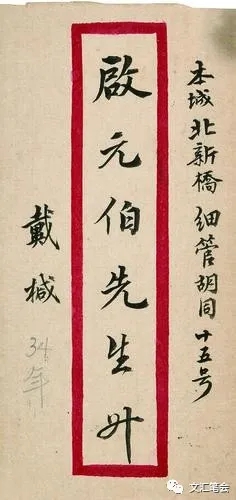 本城北新橋細管胡同十五号
啟元伯先生升
戴槭
34年
文汇笔会